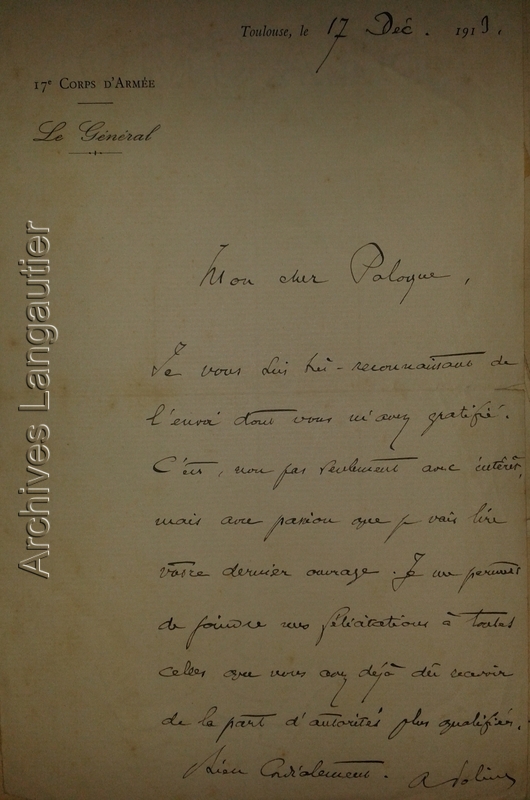 Toulouse, le 17 Déc. 1913.
17e CORPS D'ARMÉE
Le Général
Mon cher Paloque,
Je vous suis très-reconnaissant de
l'envoi dont vous m'avez gratifié.
C'est, non pas seulement avec intérêt,
mais avec passion que je vais lire
votre dernier ouvrage. Je me permets
de joindre mes félicitations à toutes
celles que vous avez déjà dû recevoir
de la part d'autorités plus qualifiées.
Bien Cordialement.
Archives Langautier